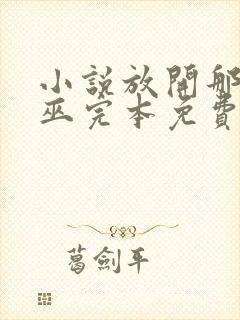 小說放開那
巫完本免費
葛劍平